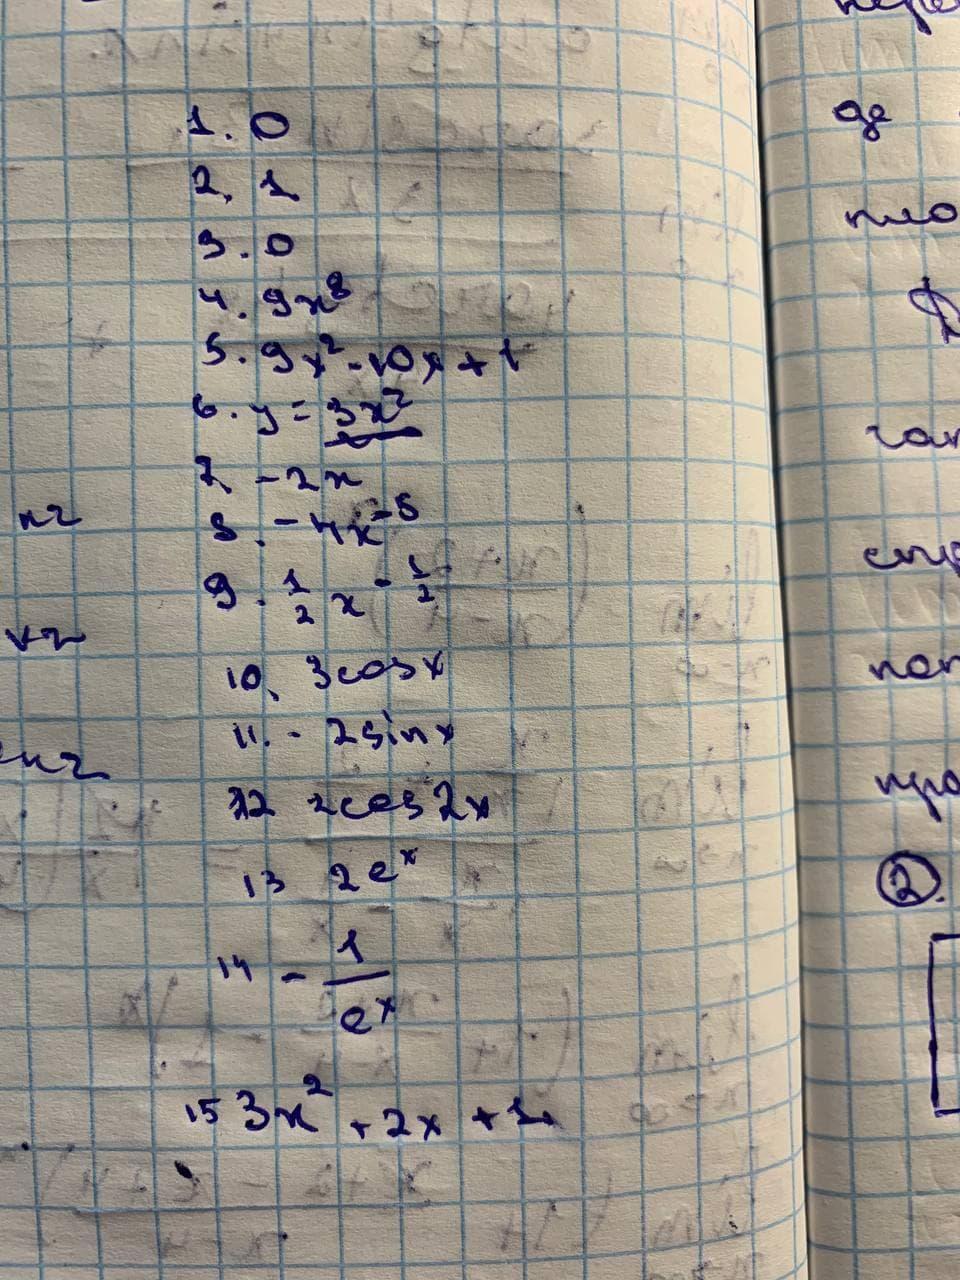 1. 0
2. 1
3. 0
4. 9x⁸
5. 9x² - 10x + 1
6. y = 3x²
7. -2x
8. -4x⁻⁵
9. 1/2 x^(-1/2)
10. 3cosx
11. - 2sinx
12 2cos2x
13 2eˣ
14 - 1/eˣ
15 3x² + 2x + 1.
де
②.